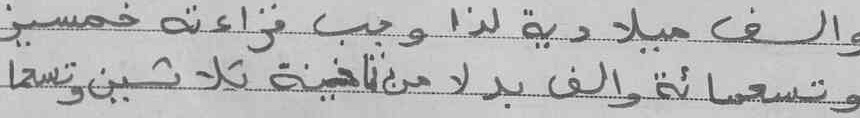 والف ميلادية لذا وجب قراءته خمسين
وتسعمائة والف بدلا من ثلاثين وتسعما